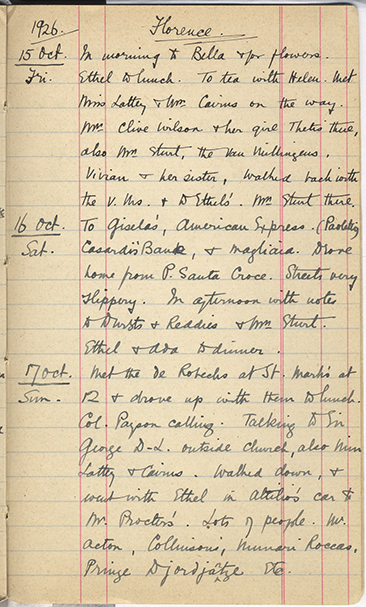 1926. Florence.
15 Oct. In morning to Bella & for flowers.
Fri. Ethel to lunch. To tea with Helen. Met
Miss Lattey & Mrs. Cairns on the way.
Mrs. Clive Wilson & her girl Thetis there,
also Mrs. Sturt, the Van Millingens.
Vivian & her sister, Walked back with
the V. Ms. & to Ethel's. Mrs. Sturt there.
16 Oct. To Gisela's, American Express. (Paoletti)
Sat. Casardi's Bank, & Magliaia. Drove
home from P. Santa Croce. Streets very
slippery. In afternoon with notes
to Dursts & Reddies & Mrs Sturt.
Ethel & Ada to dinner.
17 Oct. Met the De Robecks at St. Mark's at
Sun. 12 & drove up with them to lunch.
Col. Payson calling. Talking to Sir
George D-L. outside church, also Miss
Lattey & Cairns. Walked down, &
went with Ethel in Attilio's car to
Mr. Procters'. Lots of people. Mr.
Acton, Collinsons, Munari Roccas,
Prince Djordjätze Etc.